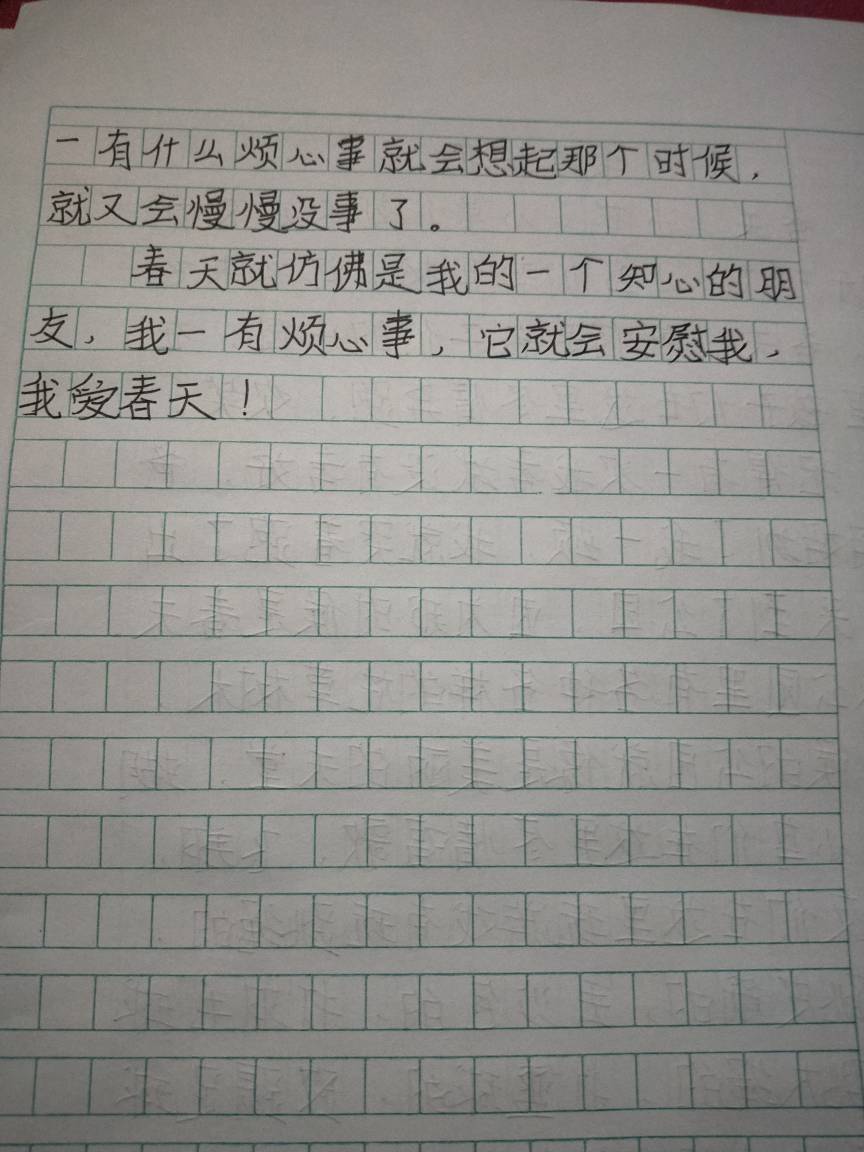 一有什么烦心事就会想起那个时候，
就又会慢慢没事了。
春天就仿佛是我的一个知心的朋
友，我一有烦心事，它就会安慰我，
我爱春天！